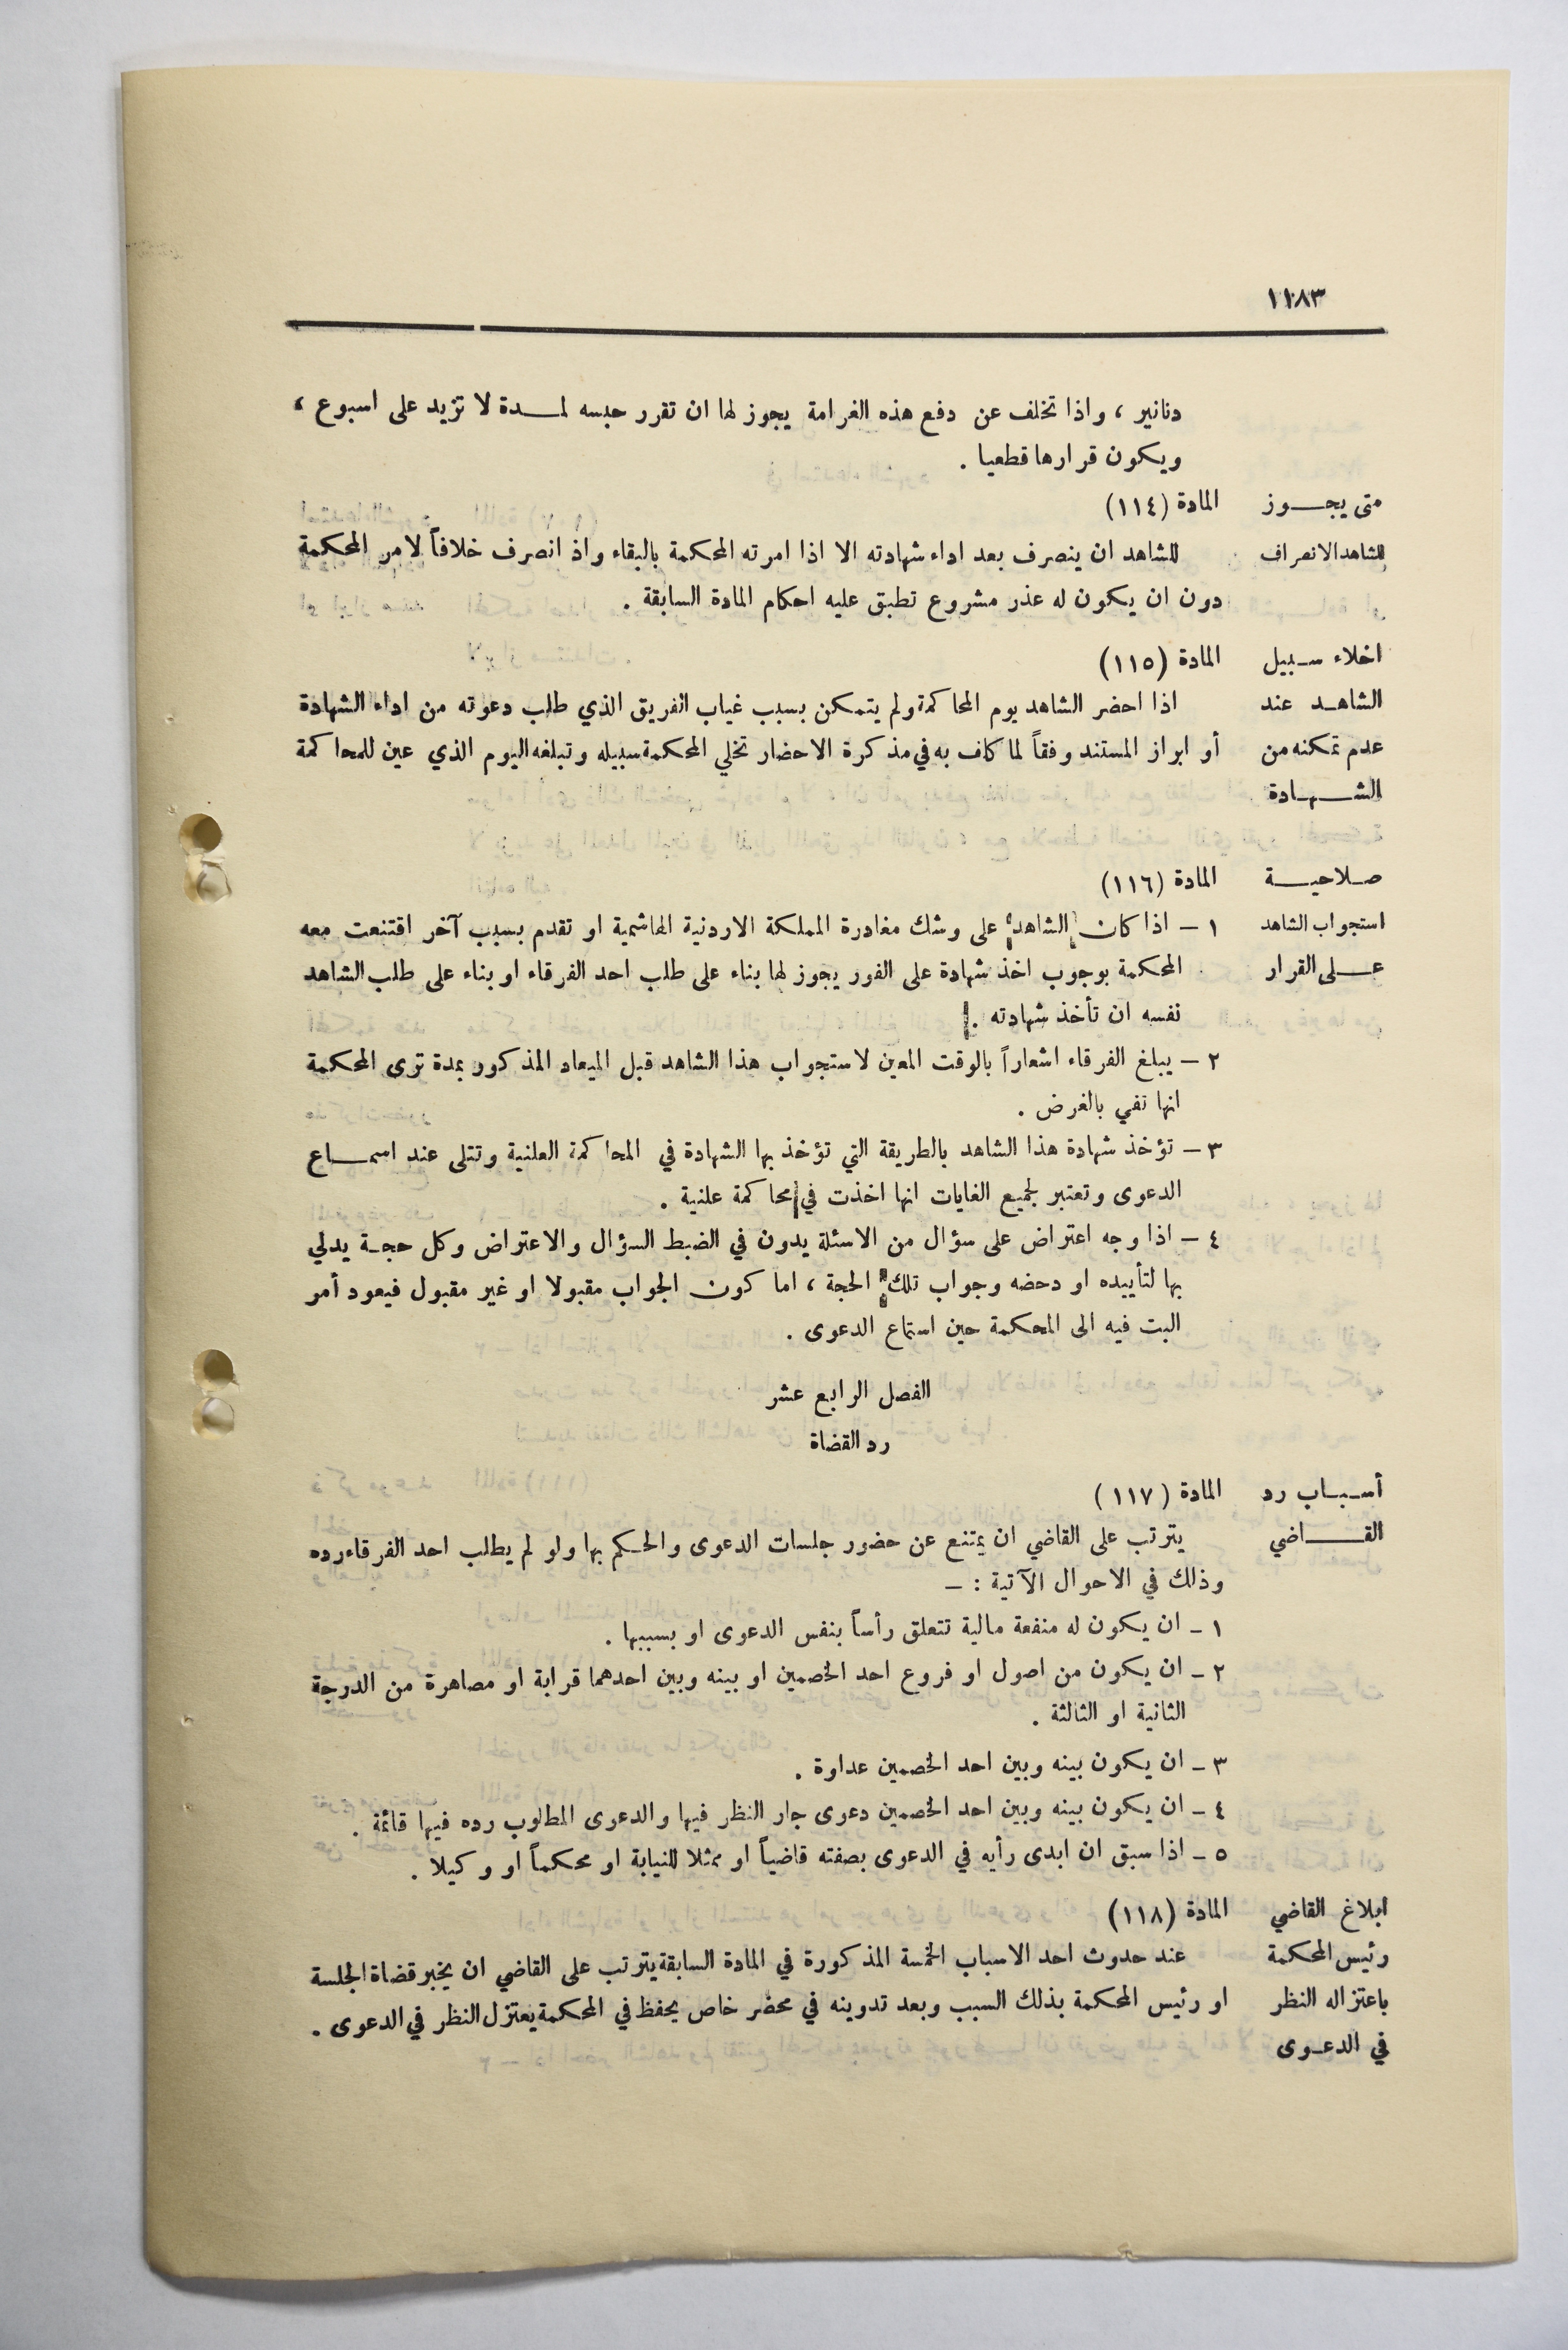 ١١٨٣
دنانير ، واذا تخلف عن دفع هذه الغرامة يجوز لها ان تقرر حبسه لمـــدة لا تزيد على اسبوع ،
ويكون قرارها قطعيا .
متى يجـــوز المادة (١١٤)
للشاهد الانصراف للشاهد ان ينصرف بعد اداء شهادته الا اذا امرته المحكمة بالبقاء واذ انصرف خلافاً لامر المحكمة
دون ان يكون له عذر مشروع تطبق عليه احكام المادة السابقة .
اخلاء سـبيل المادة (١١٥)
الشاهـد عند اذا احضر الشاهد يوم المحاكمة ولم يتمكن بسبب غياب الفريق الذي طلب دعوته من اداء الشهادة
عدم تمكنه من أو ابراز المستند وفقاً لما كلف به في مذكرة الاحضار تخلي المحكمة سبيله وتبلغه اليوم الذي عين للمحاكمة
الشـــهـادة
صـلاحيـــة المادة (١١٦)
استجواب الشاهد ١ – اذا كان الشاهد على وشك مغادرة المملكة الاردنية الهاشمية او تقدم بسبب آخر اقتنعت معه
عـــلى القرار المحكمة بوجوب اخذ شهادة على الفور يجوز لها بناء على طلب احد الفرقاء او بناء على طلب الشاهد
نفسه ان تأخذ شهادته .
٢ – يبلغ الفرقاء اشعاراً بالوقت المعين لاستجواب هذا الشاهد قبل الميعاد المذكور بمدة ترى المحكمة
انها تفي بالغرض .
٣ – تؤخذ شهادة هذا الشاهد بالطريقة التي تؤخذ بها الشهادة في المحاكمة العلنية وتتلى عند اسمـــاع
الدعوى وتعتبر لجميع الغايات انها اخذت في محاكمة علنية .
٤ – اذا وجه اعتراض على سؤال من الاسئلة يدون في الضبط السؤال والاعتراض وكل حجـة يدلي
بها لتأييده او دحضه وجواب تلك الحجة ، اما كون الجواب مقبولا او غير مقبول فيعود أمر
البت فيه الى المحكمة حين استماع الدعوى .
الفصل الرابع عشر
رد القضاة
أسـبـاب رد المادة (١١٧)
القـــاضي يترتب على القاضي ان يمتنع عن حضور جلسات الدعوى والحكم بها ولو لم يطلب احد الفرقاء رده
وذلك في الاحوال الآتية : –
١ – ان يكون له منفعة مالية تتعلق رأساً بنفس الدعوى او بسببها .
٢ – ان يكون من اصول او فروع احد الخصمين او بينه وبين احدهما قرابة او مصاهرة من الدرجة
الثانية او الثالثة .
٣ – ان يكون بينه وبين احد الخصمين عداوة .
٤ – ان يكون بينه وبين احد الخصمين دعوى جار النظر فيها والدعوى المطلوب رده فيها قائمة .
٥ – اذا سبق ان ابدى رأيه في الدعوى بصفته قاضياً او ممثلا للنيابة او محكماً او وكيلا .
ابلاغ القاضي المادة (١١٨)
رئيس المحكمة عند حدوث احد الاسباب الخمسة المذكورة في المادة السابقة يترتب على القاضي ان يخبر قضاة الجلسة
باعتزاله النظر او رئيس المحكمة بذلك السبب وبعد تدوينه في محضر خاص يحفظ في المحكمة يعتزل النظر في الدعوى .
في الدعـوى